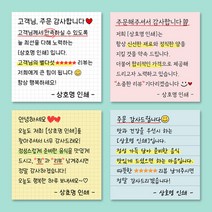 고객님, 주문 감사합니다❤
고객님께서 만족하실 수 있도록
늘 최선을 다해 노력하는
[상호명 인쇄] 입니다.
고객님의 별다섯 ★★★★★ 리뷰는
저희에게 큰 힘이 됩니다.
항상 행복하세요!
- 상호명 인쇄 -
주문해주셔서 감사합니다
저희 [상호명 인쇄]는
항상 신선한 재료와 정직한 맛을
지킬 것을 약속드립니다.
더불어 합리적인 가격으로
보답하기 위해 노력하겠습니다.
★★★★★
소중한 리뷰 부탁드립니다^^
- 상호명 인쇄 -
안녕하세요❤
오늘도 저희 [상호명 인쇄]를
찾아주셔서 너무 감사드려요!
정성스럽게 준비한 음식을 맛있게
드시고, "찜"과 "리뷰" 남겨주시면
정말 감사드리겠습니다!
오늘도 행복한 하루 보내세요~
- 상호명 인쇄 -
주문 감사드립니다
맛과 건강을 우선시 하는
[상호명 인쇄] 입니다.
정성 가득 담아 준비한 음식
맛있게 드셨으면 하는 마음입니다.
★★★★★ 리뷰 남겨주시면
정말 감사드리겠습니다!
- 상호명 인쇄 -